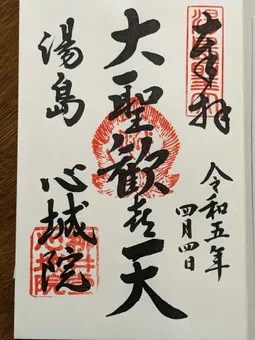 奉拝
令和五年
四月四日
大聖歓喜天
湯島
心城院